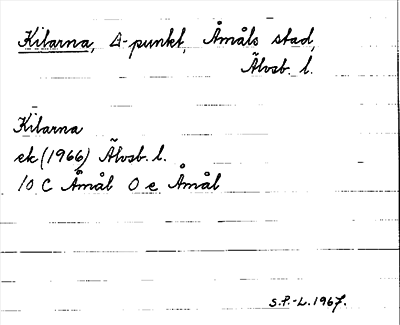 Kilarna, Δ-punkt, Åmåls stad,
Älvsb. l.
Kilarna
ek (1966) Älvsb. l.
10 C Åmål O e Åmål
S.P.-L. 1967.